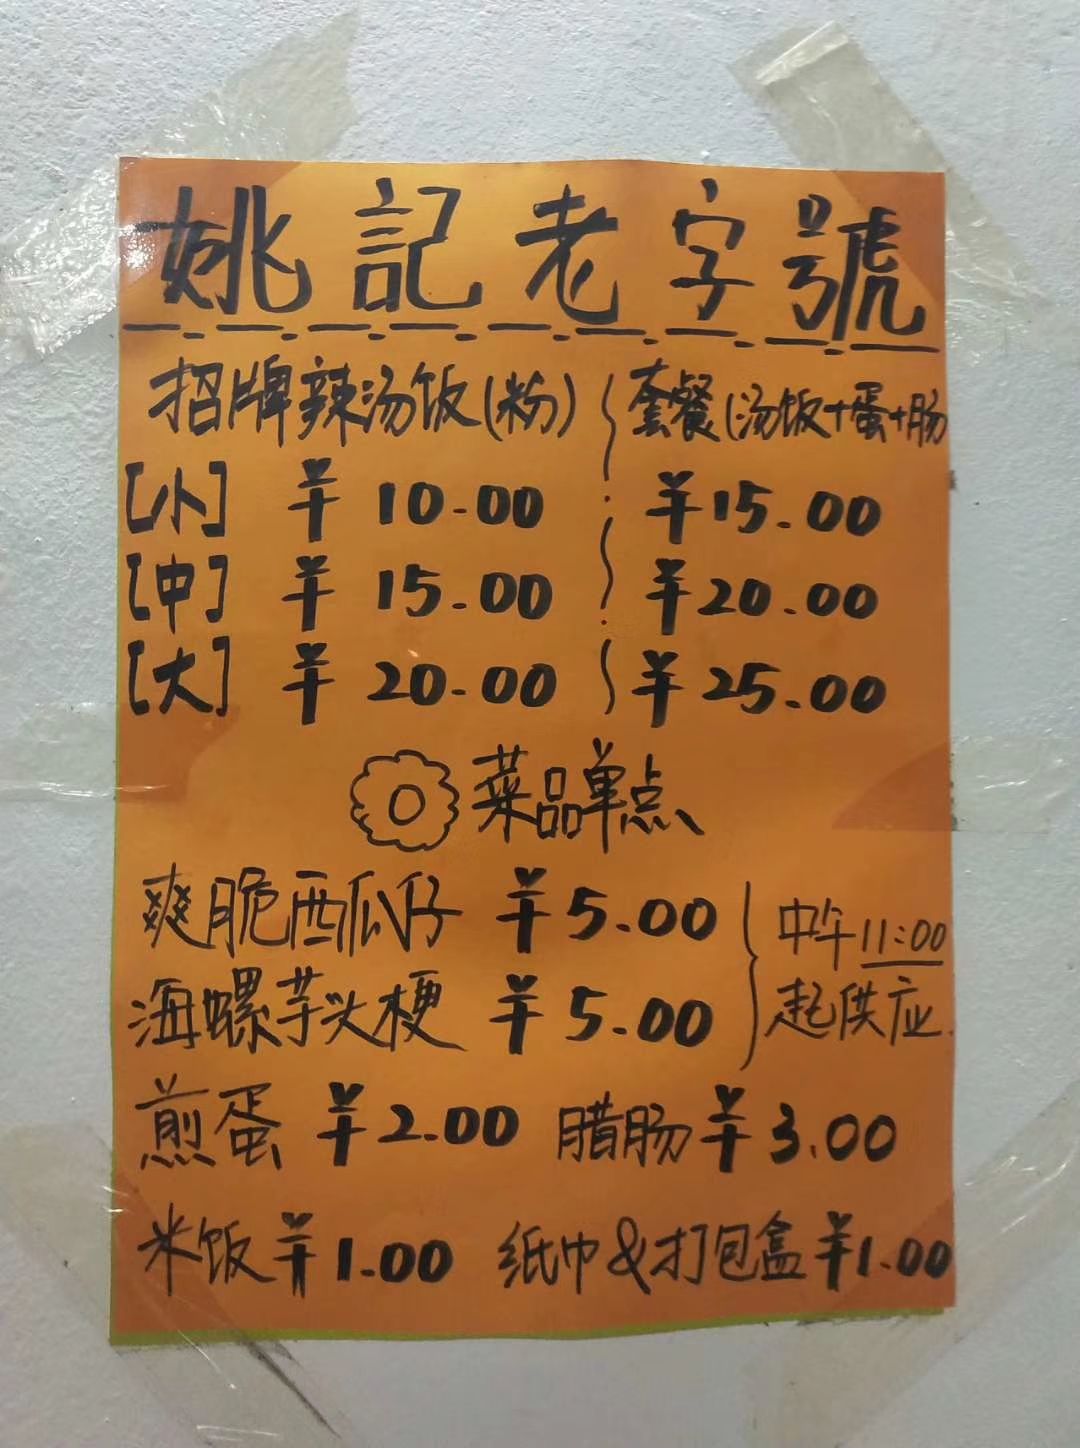 姚記老字號
招牌辣汤饭(粉) 套餐(汤饭+蛋+肠
[小] ¥10.00 ¥15.00
[中] ¥15.00 ¥20.00
[大] ¥20.00 ¥25.00
菜品单点
爽脆西瓜仔 ¥5.00
海螺芋头梗 ¥5.00
中午11:00
起供应.
煎蛋 ¥2.00 腊肠 ¥3.00
米饭 ¥1.00 纸巾&打包盒 ¥1.00